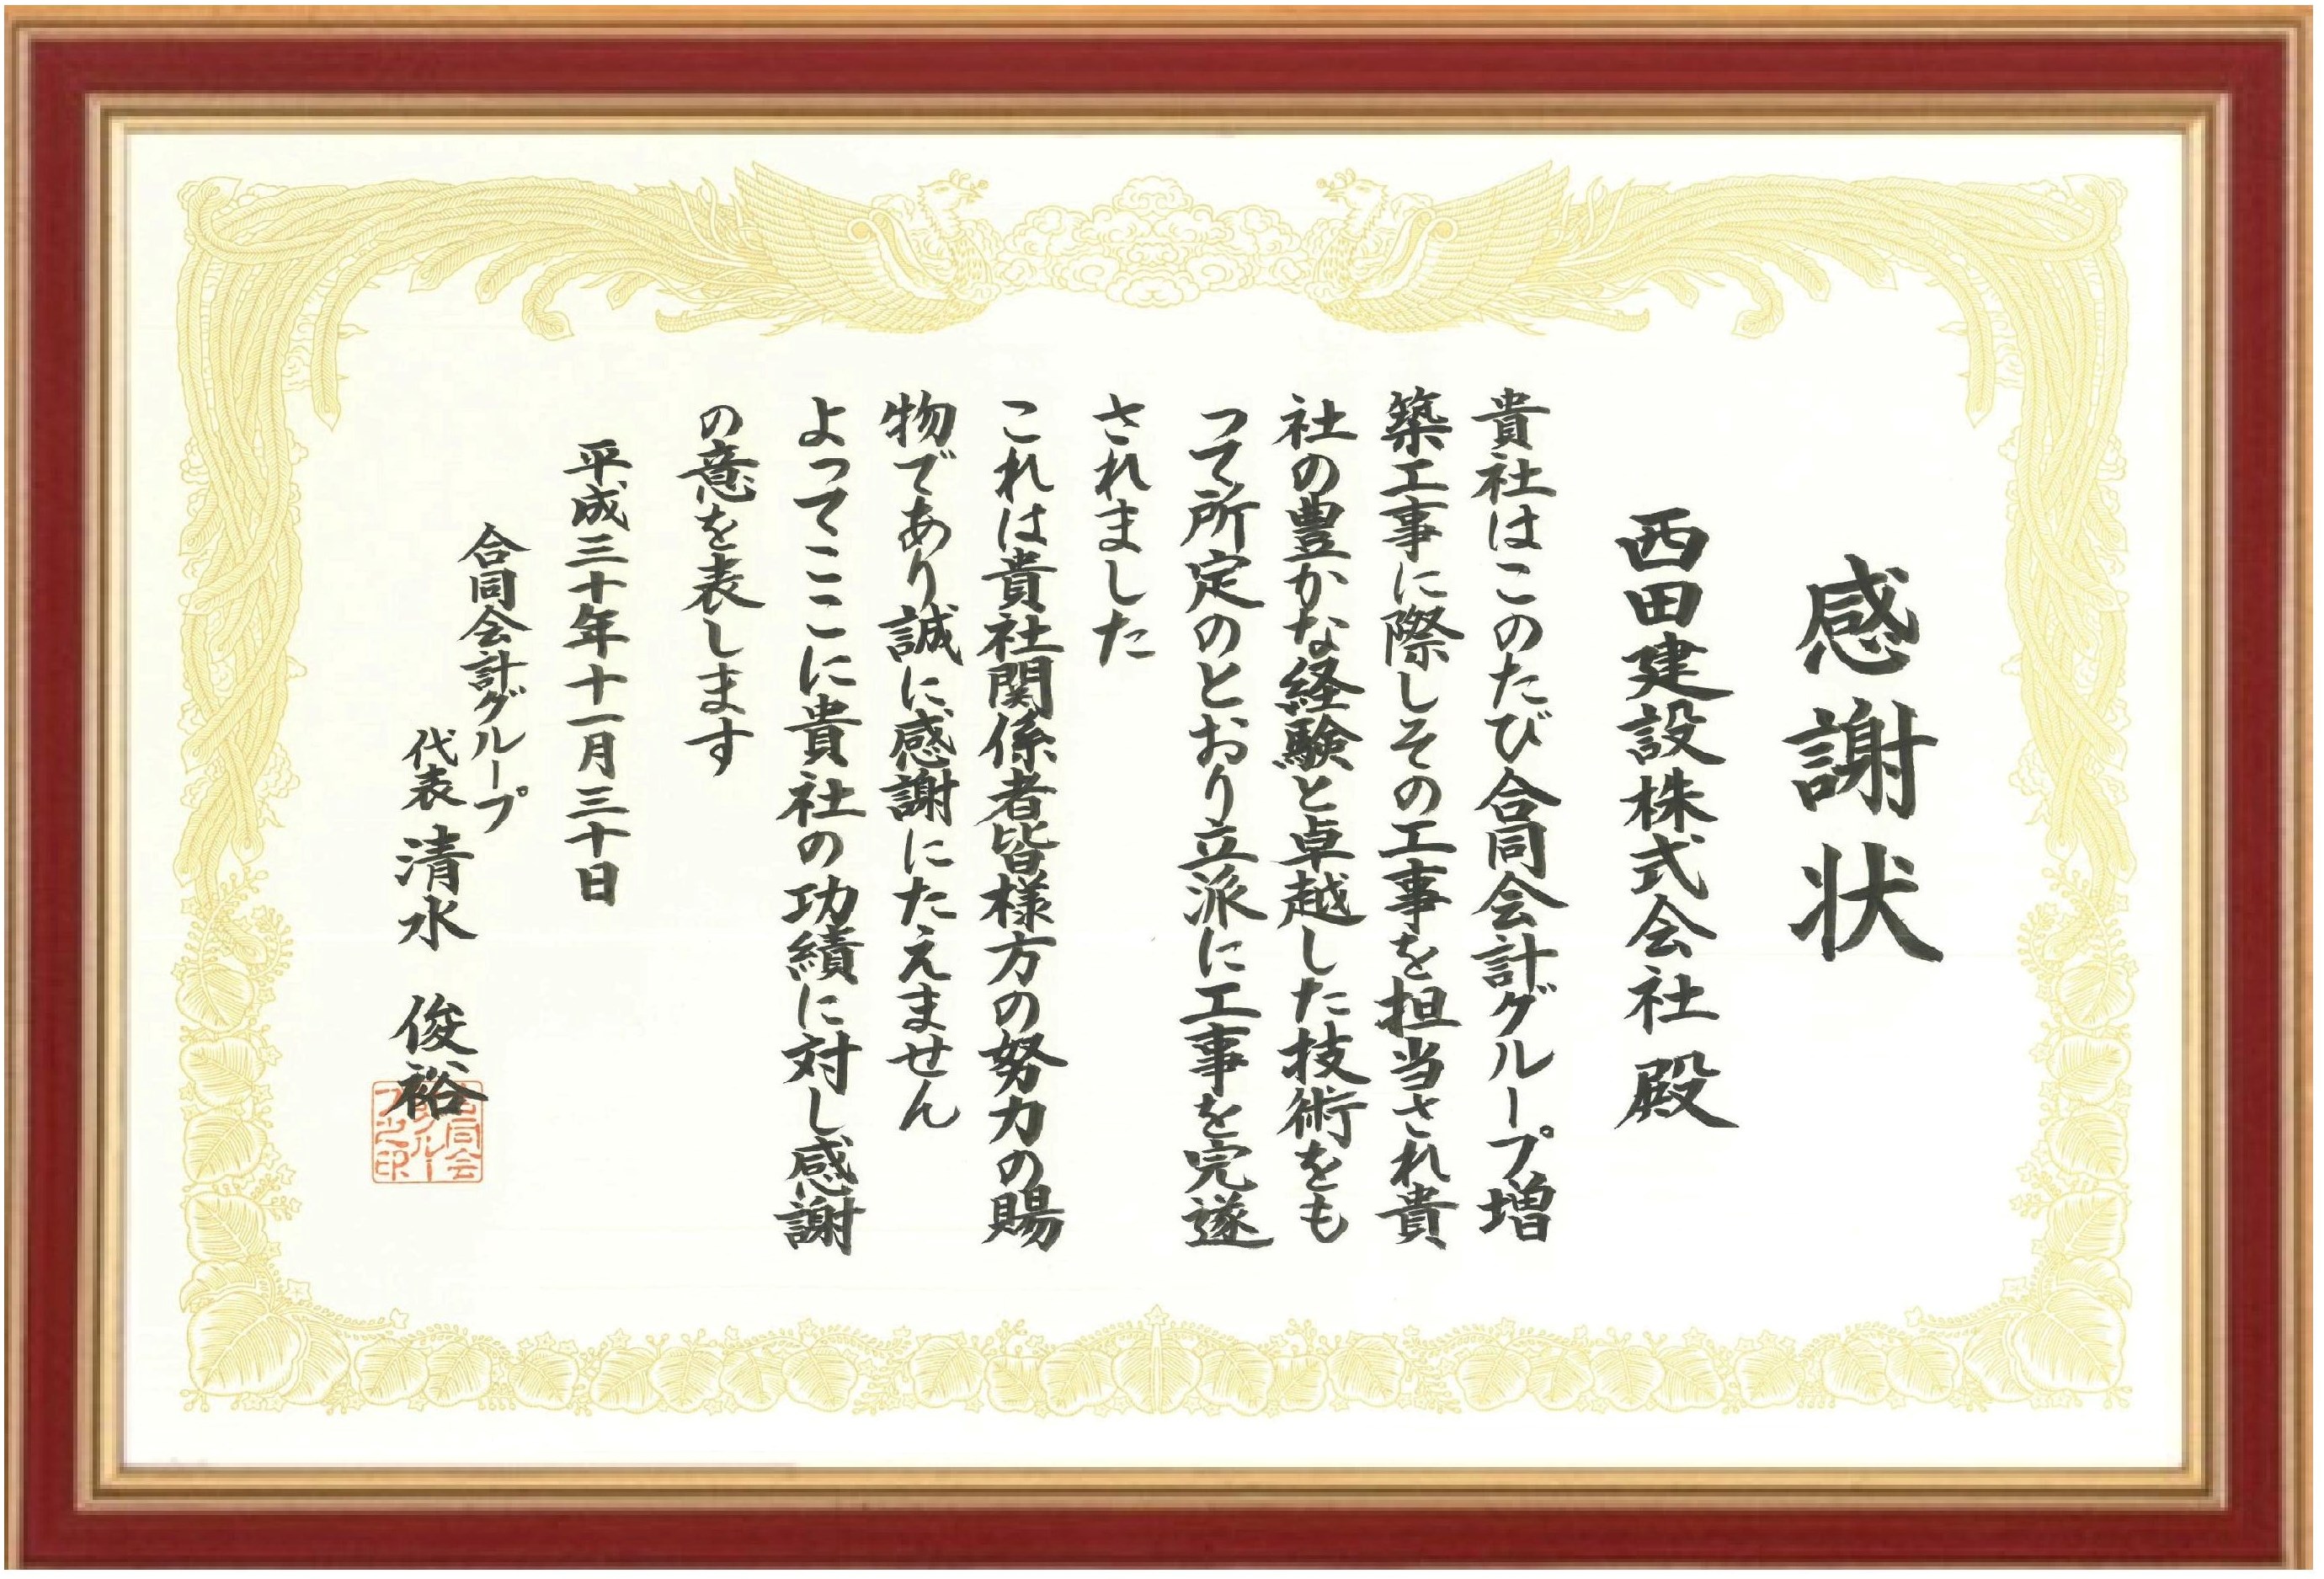 感謝状
西田建設株式会社 殿
貴社はこのたび合同会計グループ増
築工事に際しその工事を担当され貴
社の豊かな経験と卓越した技術をも
って所定のとおり立派に工事を完遂
されました
これは貴社関係者皆様方の努力の賜
物であり誠に感謝にたえません
よってここに貴社の功績に対し感謝
の意を表します
平成三十年十一月三十日
合同会計グループ
代表 清水 俊裕